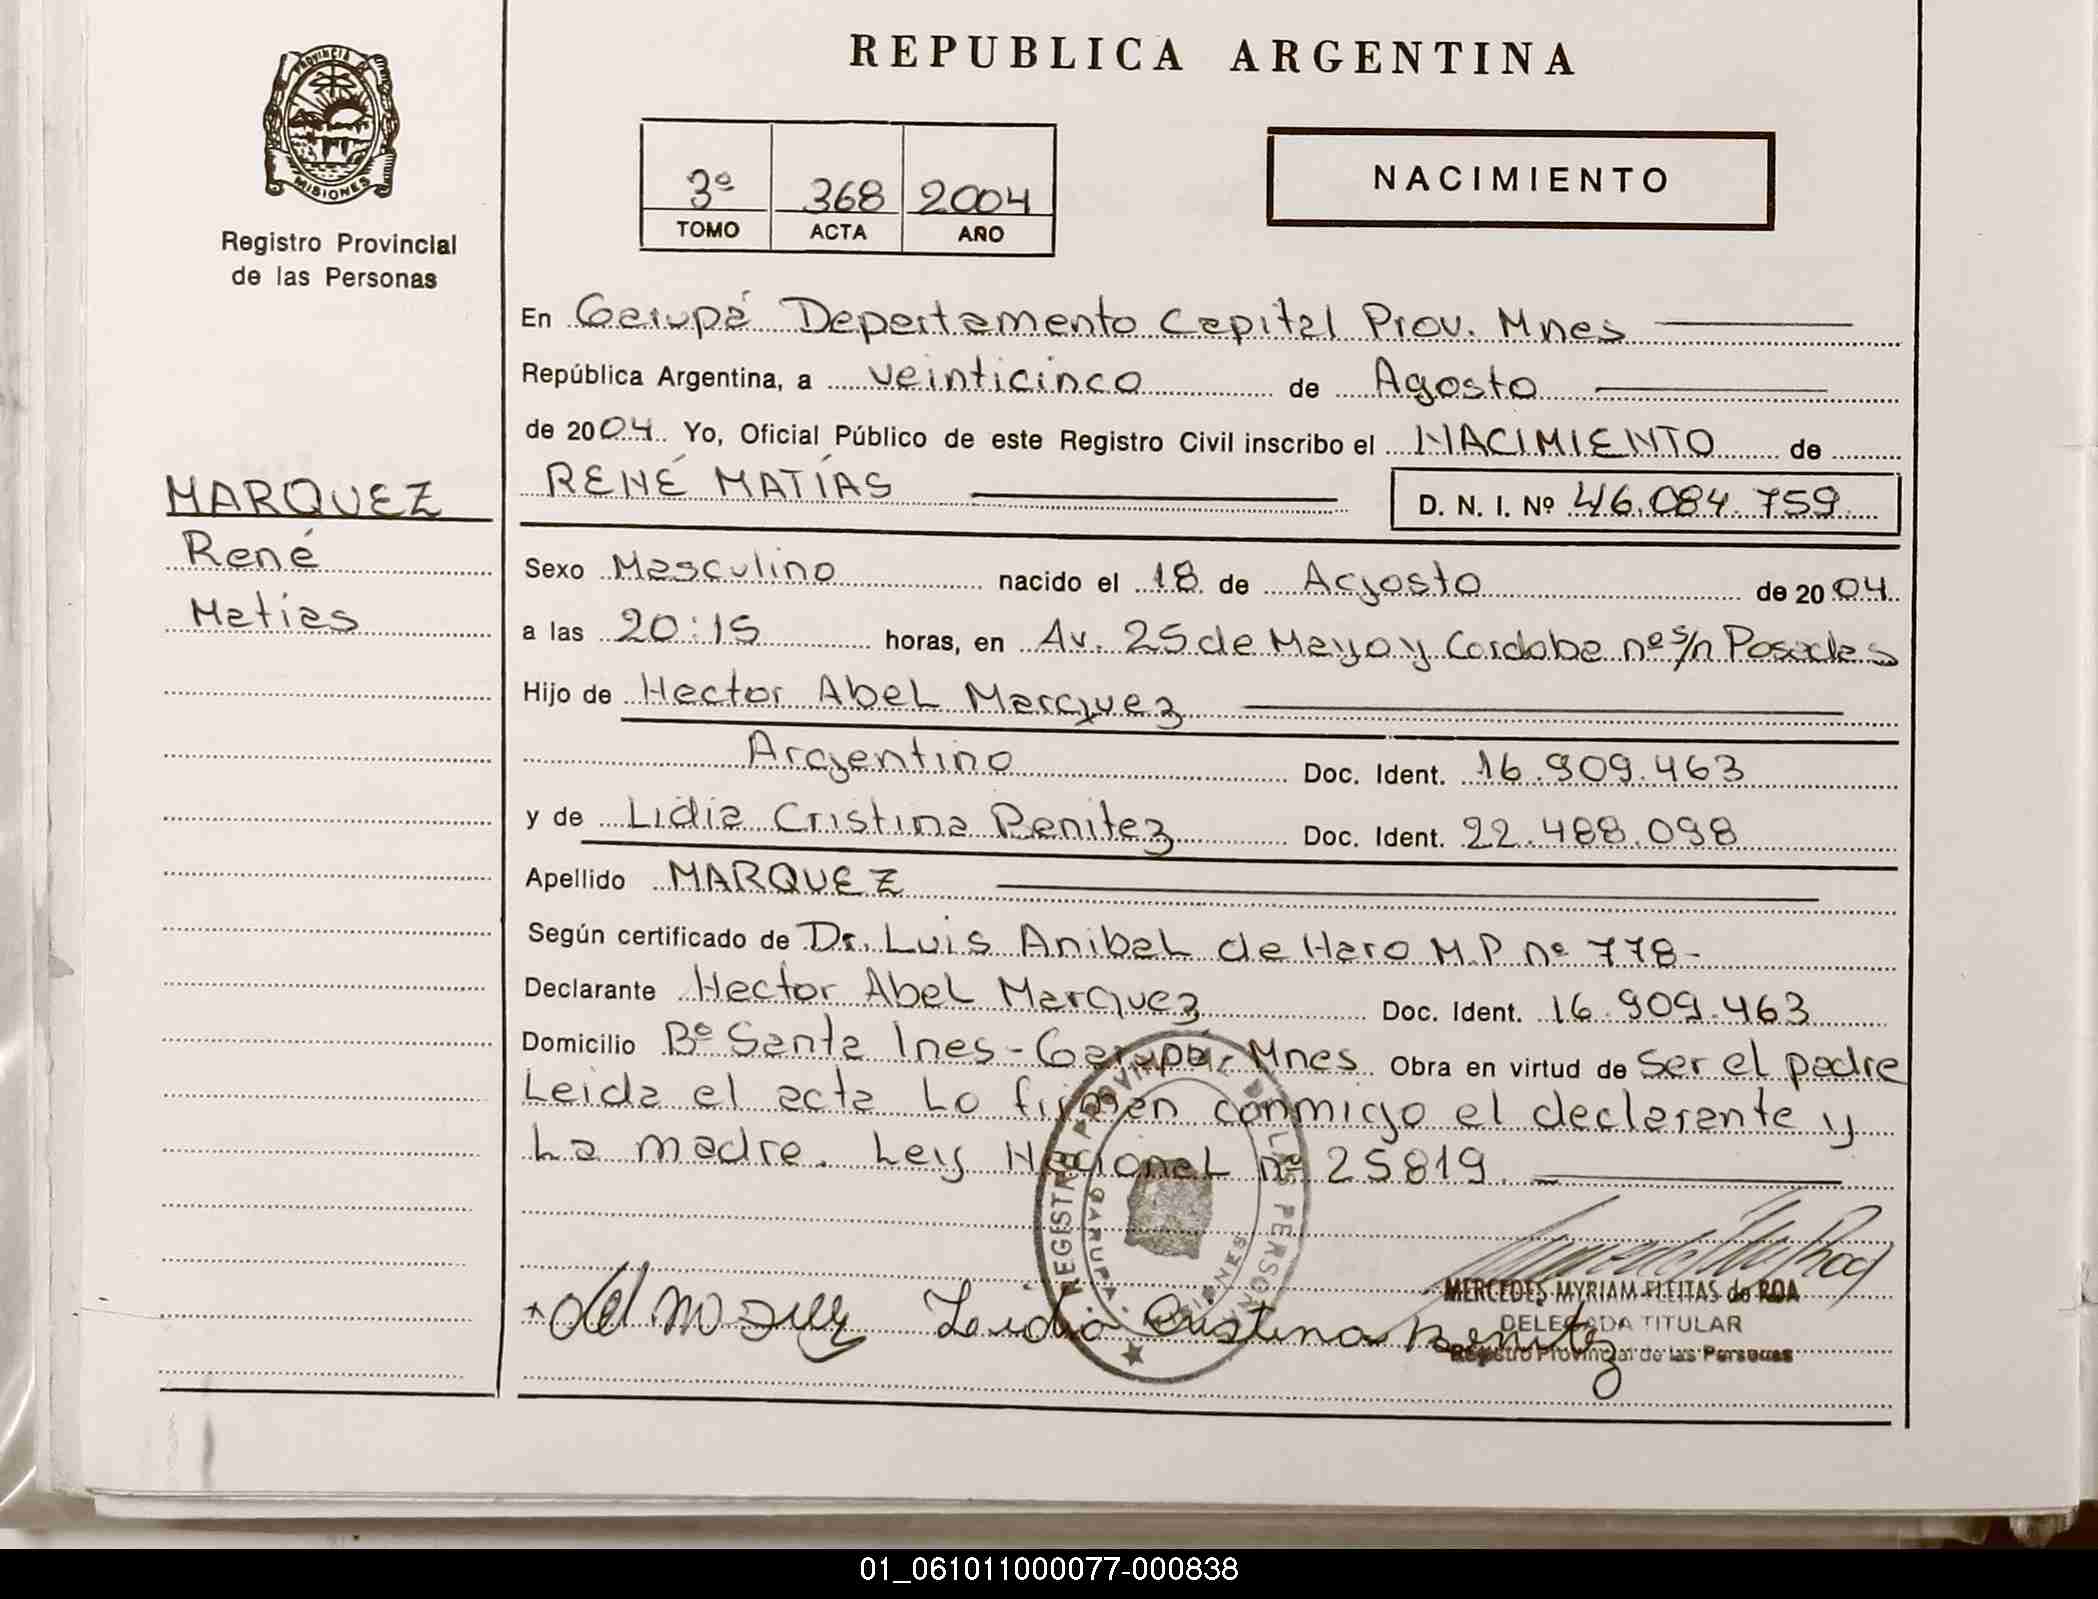 PROVINCIA DE
MISIONES
Registro Provincial
de las Personas
MARQUEZ
René
Matias
REPUBLICA ARGENTINA
3º 368 2004
TOMO ACTA AÑO
NACIMIENTO
En Garupá Departamento Capital Prov. Mnes
República Argentina, a veinticinco de Agosto
de 2004. Yo, Oficial Público de este Registro Civil inscribo el NACIMIENTO de
RENÉ MATÍAS D. N. I. Nº 46.084.759
Sexo Masculino nacido el 18 de Agosto de 2004
a las 20:15 horas, en Av. 25 de Mayo y Cordoba nº s/n Posadas
Hijo de Hector Abel Marquez
Argentino Doc. Ident. 16.909.463
y de Lidia Cristina Benitez Doc. Ident. 22.488.098
Apellido MARQUEZ
Según certificado de Dr. Luis Anibal de Haro M.P nº 778-
Declarante Hector Abel Marquez Doc. Ident. 16.909.463
Domicilio Bº Santa Ines - Garupá, Mnes Obra en virtud de Ser el padre
Leida el acta Lo firman conmigo el declarante y
La madre. Ley Nacional nº 25819.
REGISTRO PROVINCIAL DE LAS PERSONAS
GARUPA MISIONES
Lidia Cristina Benitez
MERCEDES MYRIAM FLEITAS de ROA
DELEGADA TITULAR
Registro Provincial de las Personas
01_061011000077-000838